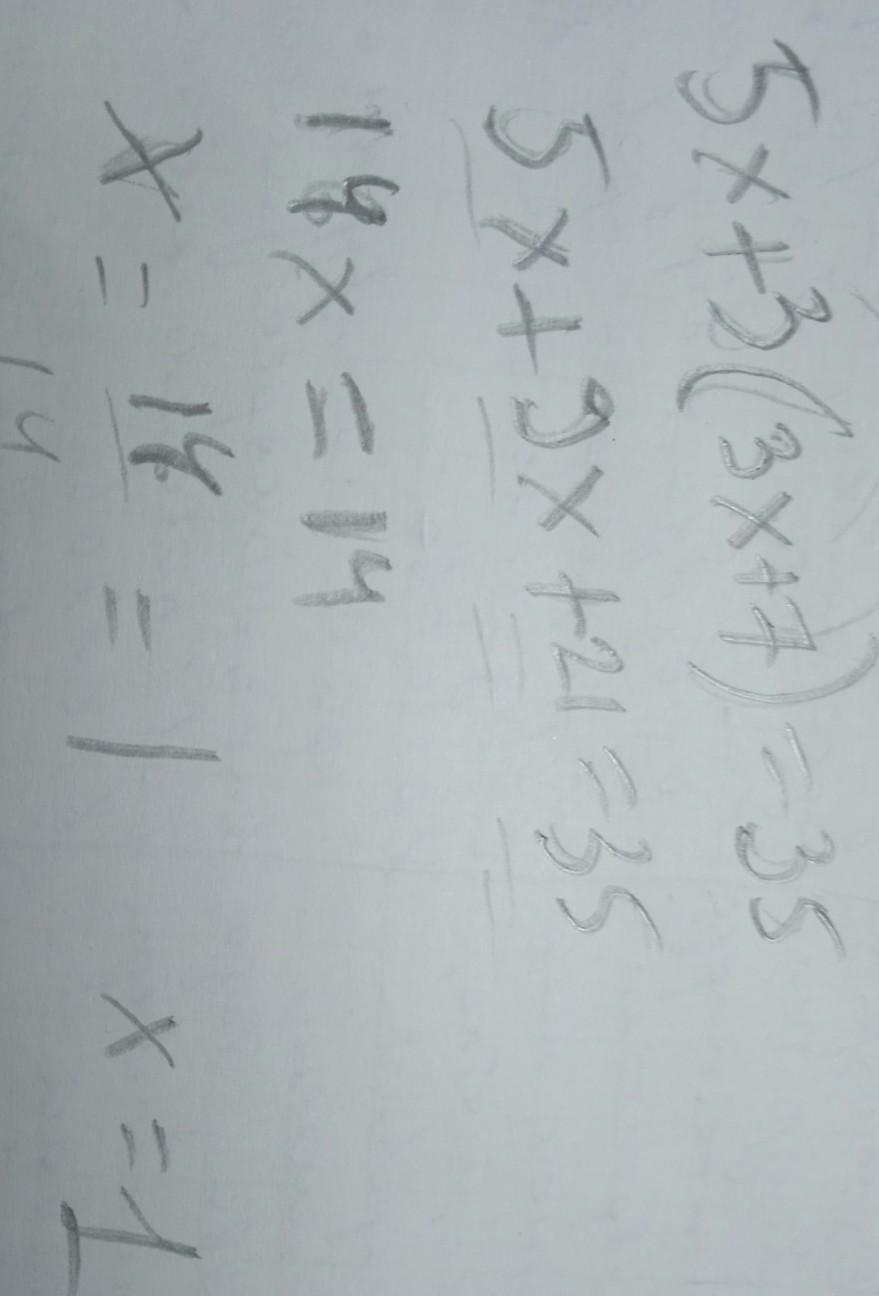 5x+3(3x+7)=35
5x+9x+21=35
14x=14
x=14/14=1 x=1